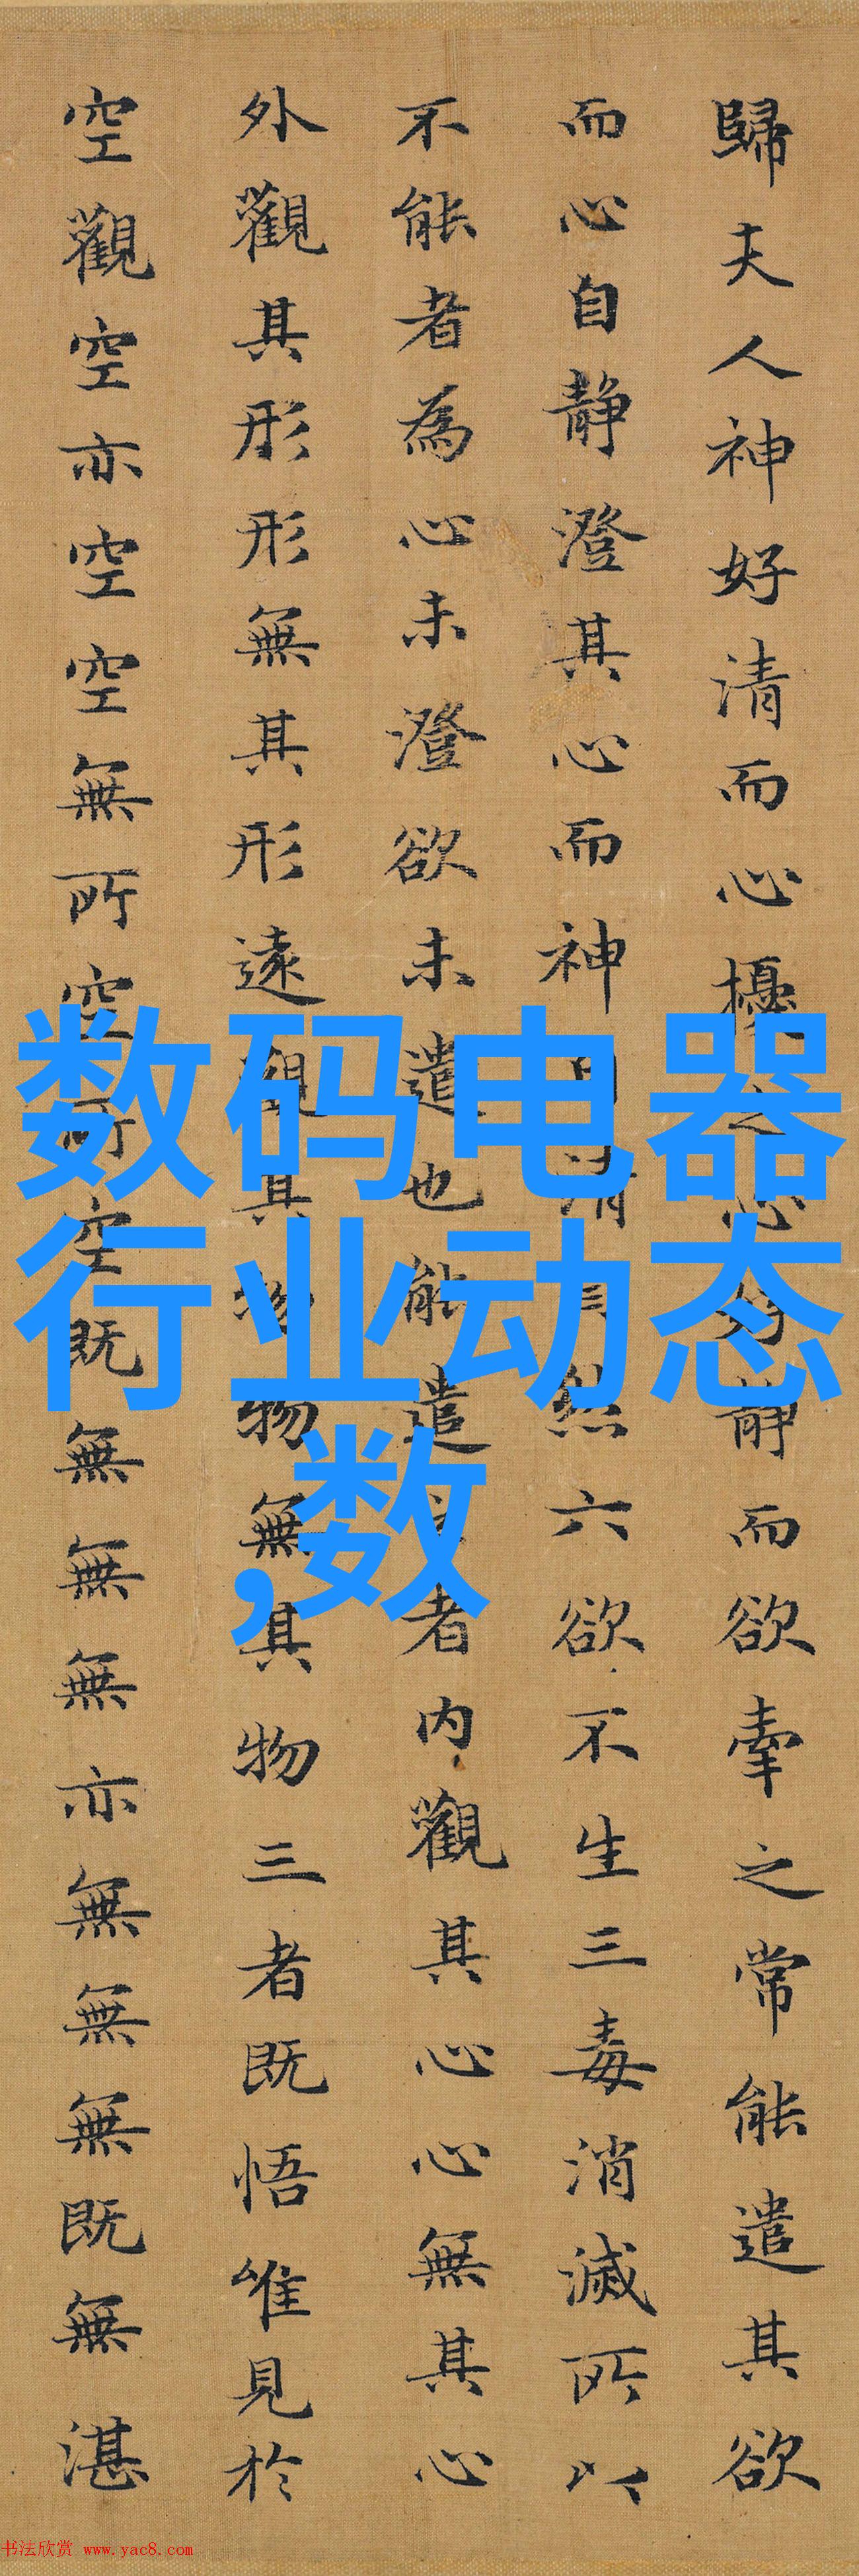 歸夫人神好清而心擾之心好静而欲牽之常能遣其欲
而心自静澄其心而神自清自然六欲不生三毒消滅所以
不能者為心未澄欲未遣也能遣之者内觀其心心無其心
外觀其形形無其形遠觀其物物無其物三者既悟唯見於
空觀空亦空空無所空所空既無無無亦無無無既無湛
数码电器
行业动态
,数
书法欣赏 www.yac8.com